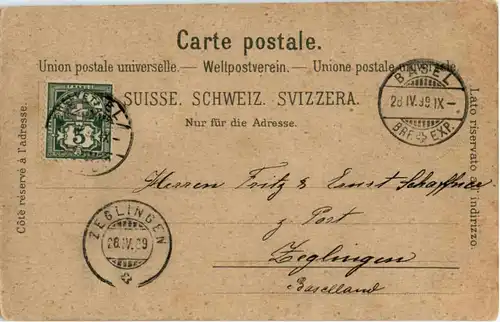 Carte postale.
Union postale universelle. — Weltpostverein. — Unione postale universale.
SUISSE. SCHWEIZ. SVIZZERA.
Nur für die Adresse.
Côté réservé à l'adresse.
Lato riservato all'indirizzo.
5
BASEL
28 IV.99.IX—
BRF. EXP.
ZEGLINGEN
28.IV.99
Herren Fritz & Ernst Schaffner
z Post
Zeglingen
Baselland